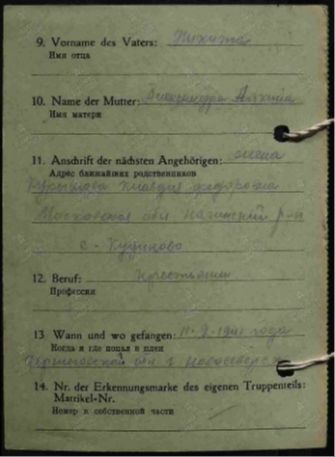 9. Vorname des Vaters: Никита
Имя отца
10. Name der Mutter: Александра
Имя матери
11. Anschrift der nächsten Angehörigen: жена
Адрес ближайших родственников
Клавдия Федоровна
Московская обл. Р-н
с. Кудиново
12. Beruf: крестьянин
Профессия
13 Wann und wo gefangen: 1941 года
Когда и где попал в плен
обл. г.
14. Nr. der Erkennungsmarke des eigenen Truppenteils:
Matrikel-Nr.
Номер в собственной части